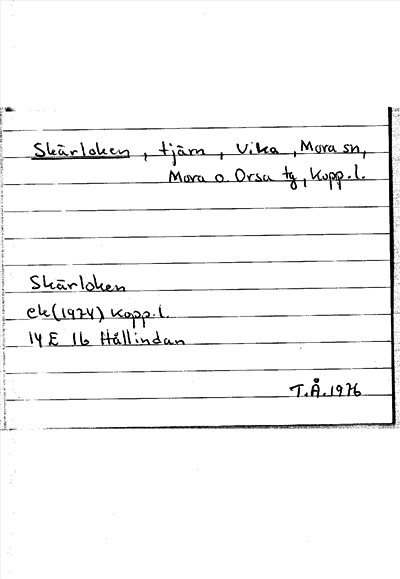 Skärloken, tjärn, Vika, Mora sn,
Mora o. Orsa tg, Kopp.l.
Skärloken
ek(1974) Kopp.l.
14 E 1b Hållindan
T.Å.1976